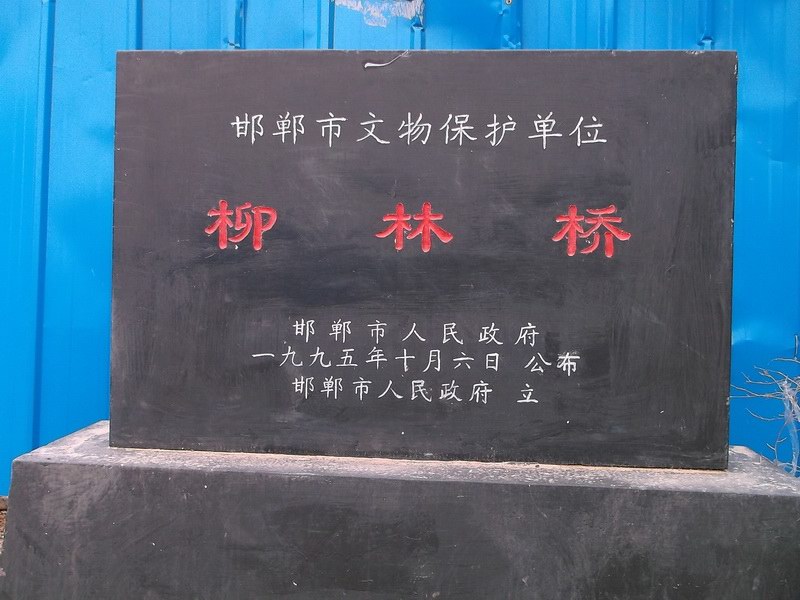 邯郸市文物保护单位
柳林桥
邯郸市人民政府
一九九五年十月六日 公布
邯郸市人民政府 立